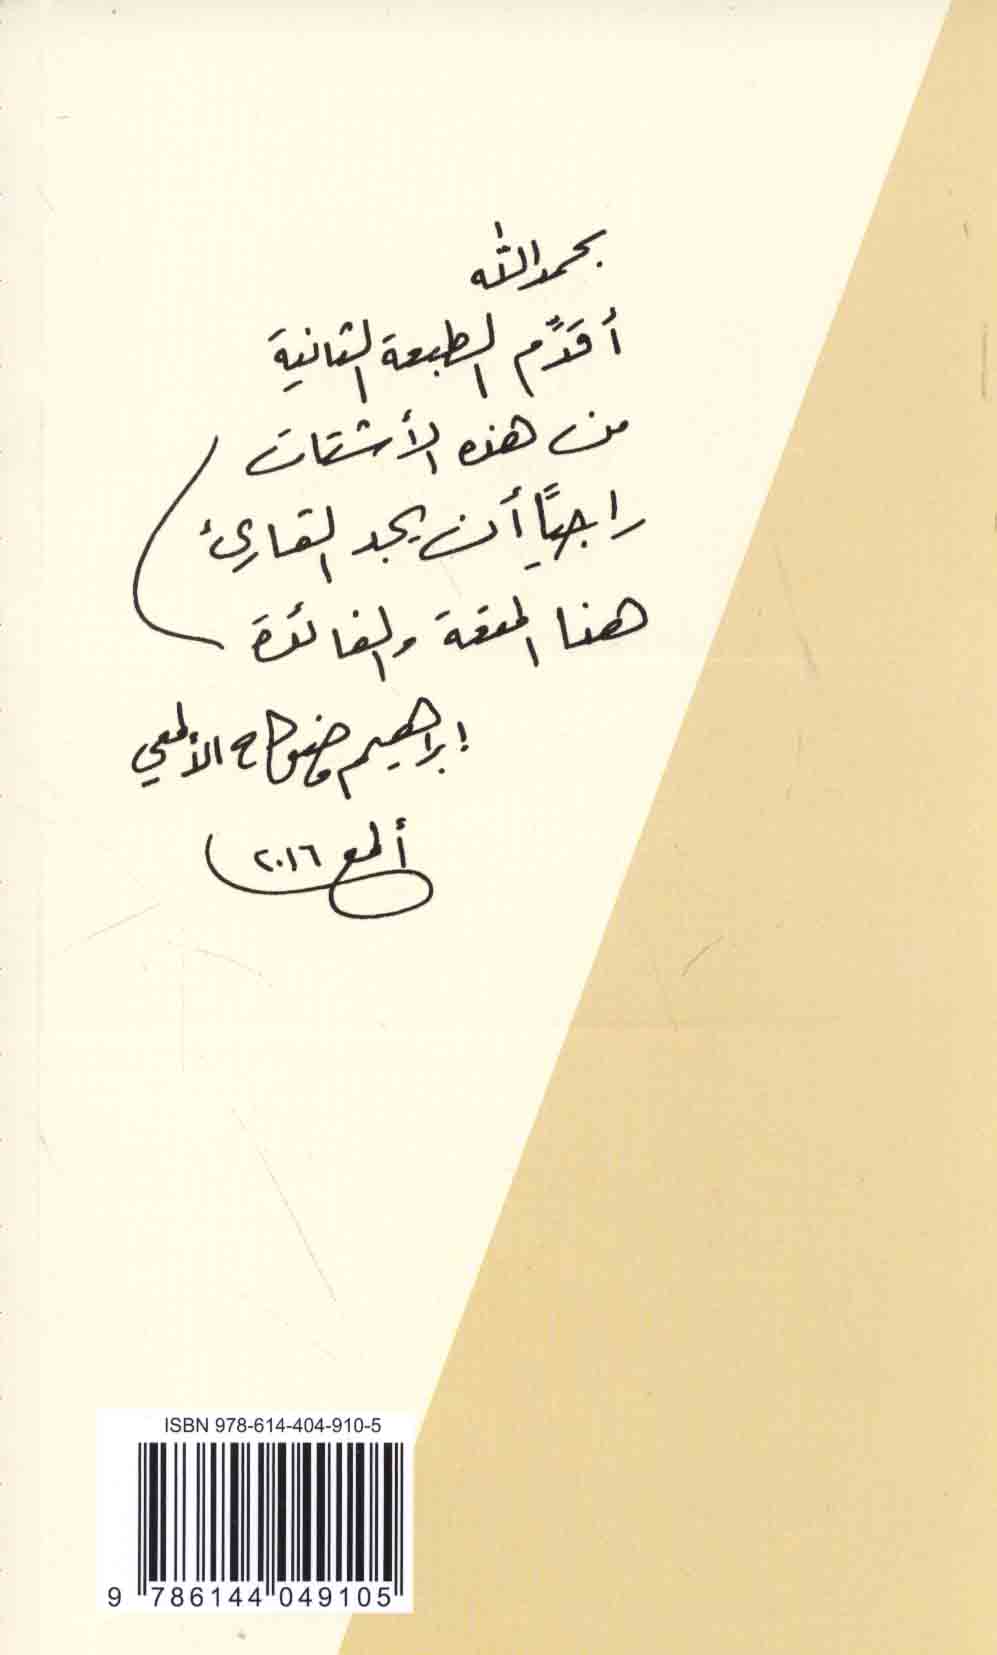 بحمد الله
أقدِّم الطبعة الثانية
من هذه الأشتات
راجياً أن يجد القارئ
هنا المتعة والفائدة
إبراهيم مضواح الألمعي
ألمع ٢٠١٦
ISBN 978-614-404-910-5
9 786144 049105